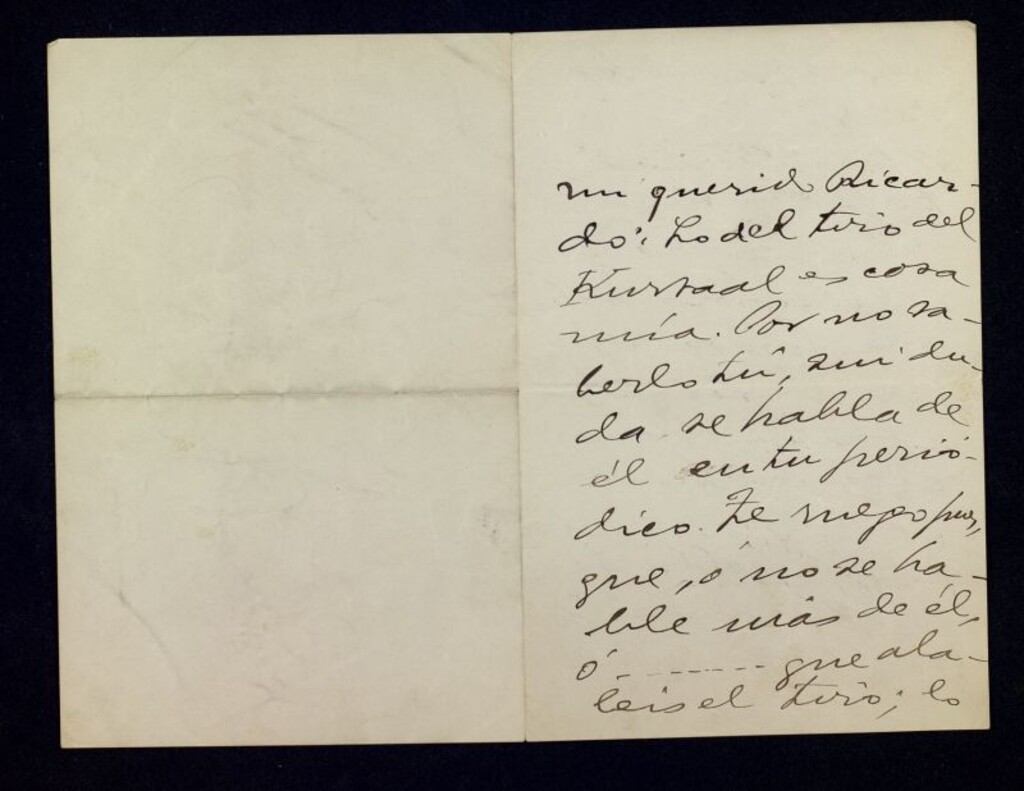 Mi querido Ricar-
do: Lo del tiro del
Kursaal es cosa
mía. Por no sa-
berlo tú, sin du-
da se habla de
él en tu perió-
dico. Te ruego pues,
que, ó no se ha-
ble más de él,
ó - - - - - - - que ala-
beis el tiro; lo